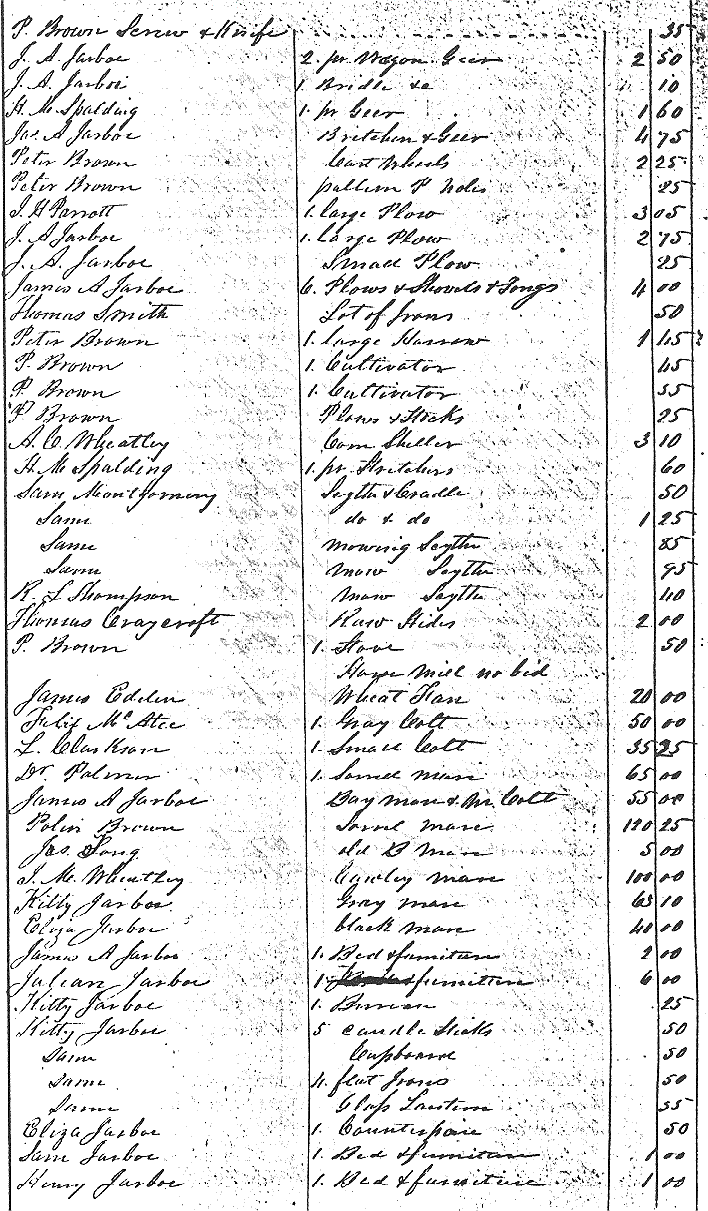 P. Brown Screw & Knife 35
J. A Jarboe 2. pr Wagon Geer 2 50
J. A. Jarboe 1. Bridle &c 10
H. M. Spalding 1. pr Geer 1 60
Jas. A Jarboe Britchen & Geer 4 75
Peter Brown Cart Wheels 2 25
Peter Brown pattern P
J. H Parrott 1. large Plow 3 05
J. A Jarboe 1. Large Plow 2 75
J. A. Jarboe Small Plow 25
James A Jarboe 6. Plows & Shovels & Tongs 4 00
Thomas Smith Lot of Irons 50
Peter Brown 1. large Harrow 1 45
P. Brown 1. Cultivator 45
P. Brown 1. Cultivator 55
P Brown Plows & Stocks 25
A. C. Wheatley Corn Sheller 3 10
H. M Spalding 1. pr Stretchers 60
Sam Montgomery Scythe & Cradle 50
Same do & do 1 25
Same mowing Scythe 85
Same mow Scythe 95
R. L Thompson mow Scythe 40
Thomas Craycroft Raw Hides 2 00
P. Brown 1. Stove 50
Horse mill no bid
James Edelen Wheat Fan 20 00
Felix McAtee 1. Gray Colt 50 00
L. Clarkson 1. Small Colt 35 25
Dr. Palmer 1. Sorrel mare 65 00
James A Jarboe Bay mare & M. Colt 55 00
Polin Brown Sorrel mare 120 25
Jas. Long old B mare 5 00
J. M. Wheatley mare 100 00
Kitty Jarboe Gray mare 65 10
Eliza Jarboe black mare 40 00
James A Jarboe 1. Bed & furniture 2 00
Julian Jarboe 1. & furniture 6 00
Kitty Jarboe 1. Bureau 25
Kitty Jarboe 5 Candle Sticks 50
Same Cupboard 50
Same 4. flat Irons 50
Same Glass Lantern 55
Eliza Jarboe 1. Counterpane 50
Sam Jarboe 1. Bed & furniture 1 00
Henry Jarboe 1. Bed & furniture 1 00